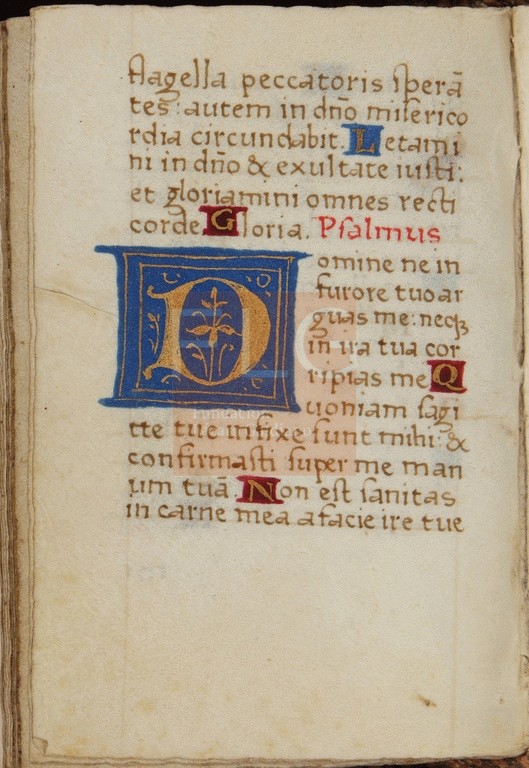 flagella peccatoris sperā
tes: autem in dño miserico
rdia circundabit. Letami
ni in dño & exultate iusti:
et gloriamini omnes recti
corde Gloria. Psalmus
Domine ne in
furore tuo ar
guas me: neqꝫ
in ira tua cor
ripias me Q
uoniam sagi
tte tue infixe sunt mihi: &
confirmasti super me man
um tuā. Non est sanitas
in carne mea a facie ire tue